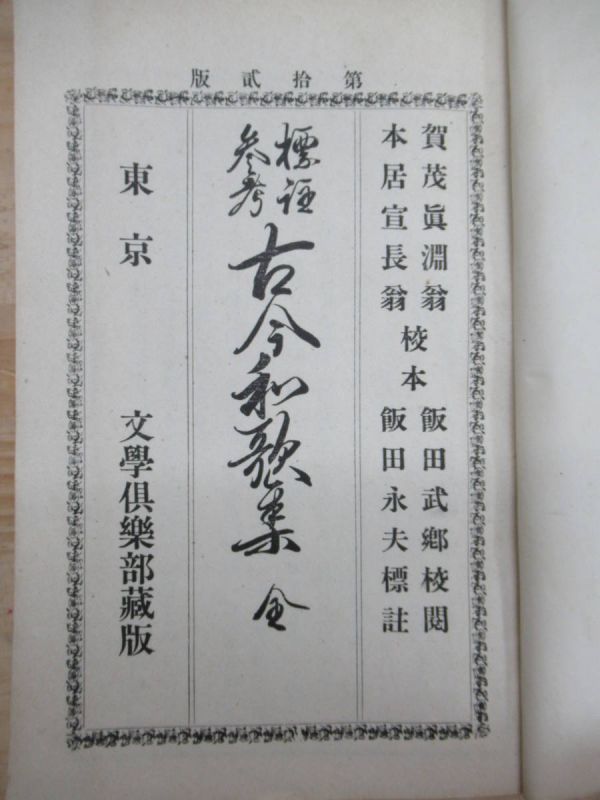 第拾貳版
賀茂眞淵翁
本居宣長翁
校本
飯田武郷校閲
飯田永夫標註
標註
参考
古今和歌集 全
東京 文學倶樂部藏版